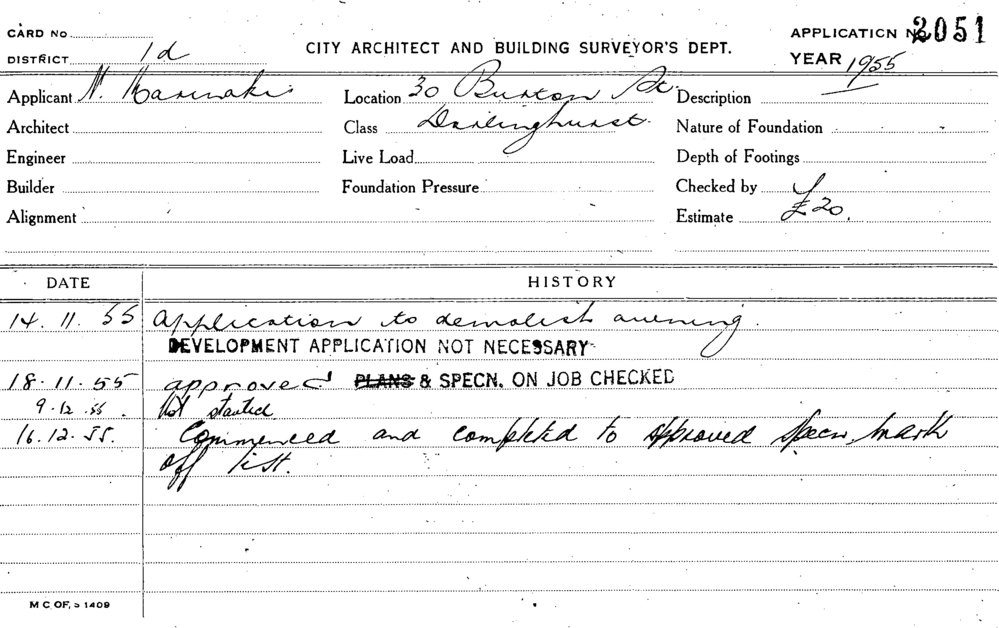 CARD No
APPLICATION No 2051
DISTRICT 1d
CITY ARCHITECT AND BUILDING SURVEYOR'S DEPT.
YEAR 1955
Applicant N.
Location 30 Burton St.
Description
Architect
Class Darlinghurst.
Nature of Foundation
Engineer
Live Load
Depth of Footings
Builder
Foundation Pressure
Checked by
Alignment
Estimate £20.
DATE
HISTORY
14. 11. 55 Application to demolish awning.
DEVELOPMENT APPLICATION NOT NECESSARY
18. 11. 55 approved PLANS & SPECN. ON JOB CHECKED
9. 12. 55. Not started
16. 12. 55. Commenced and completed to approved specn, mark
off list.
M C OF, S 1409